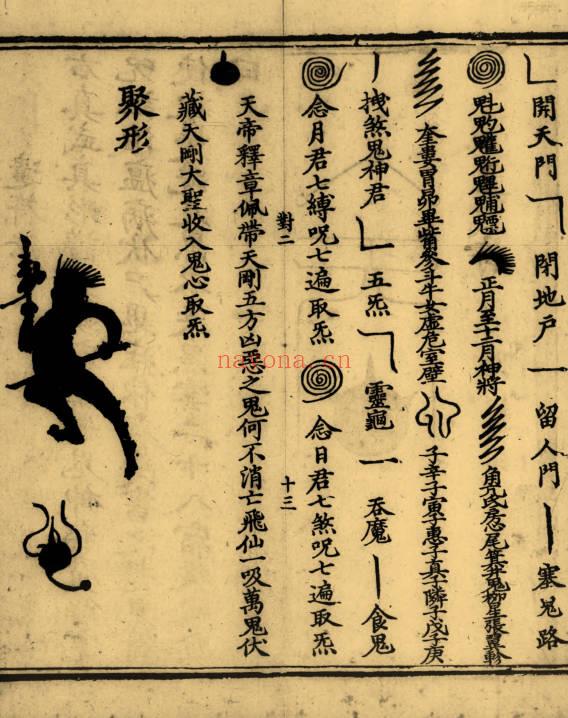 開天門 閉地戶 留人門 塞鬼路
魁 正月至十二月神將 角亢氐房心尾箕井鬼柳星張翼軫
奎婁胃昴畢觜參斗牛女虛危室壁 子辛子寅子惠子真子隣子戊子庚
拽煞鬼神君 五炁 靈龜 吞魔 食鬼
念月君七縛呪七遍取炁 念日君七煞呪七遍取炁
對二
十三
天帝釋章佩帶天剛五方凶惡之鬼何不消亡飛仙一吸萬鬼伏
藏天剛大聖收入鬼心取炁
聚形
nayona.cn